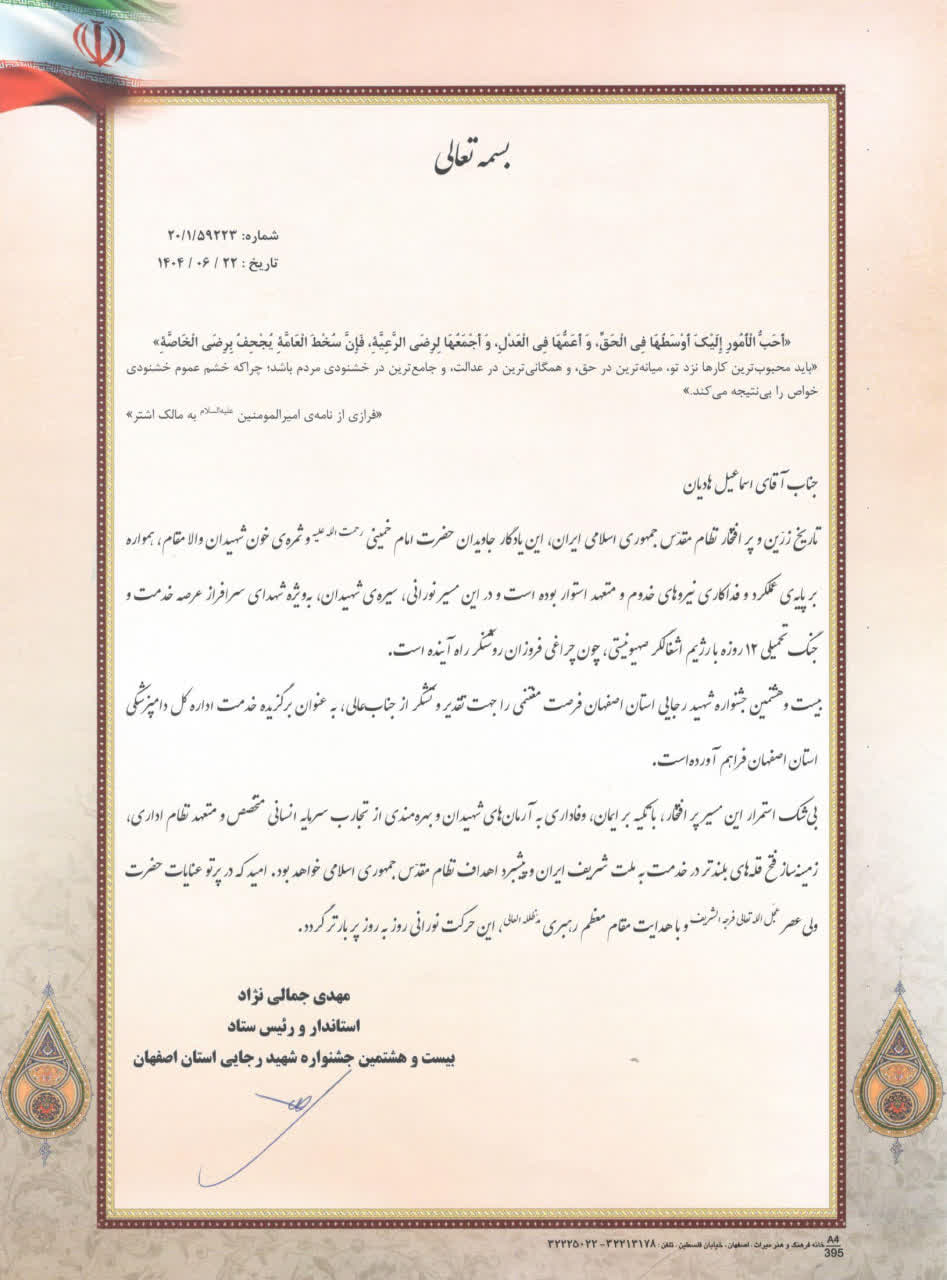 بسمه تعالی
شماره: ۲۰/۱/۵۹۲۲۳
تاریخ : ۲۲ / ۰۶ / ۱۴۰۴
«أحَبُّ الْأمُورِ إلَیْکَ أوْسَطُهَا فِی الْحَقِّ، وَ أعَمُّهَا فِی الْعَدْلِ، وَ أجْمَعُهَا لِرِضَی الرَّعِیَّةِ، فَإنَّ سُخْطَ الْعَامَّةِ یُجْحِفُ بِرِضَی الْخَاصَّةِ»
«باید محبوب‌ترین کارها نزد تو، میانه‌ترین در حق، و همگانی‌ترین در عدالت، و جامع‌ترین در خشنودی مردم باشد؛ چراکه خشم عموم خشنودی
خواص را بی‌نتیجه می‌کند.»
«فرازی از نامه‌ی امیرالمومنین علیه‌السلام به مالک اشتر»
جناب آقای اسماعیل هادیان
تاریخ زرّین و پر افتخار نظام مقدّس جمهوری اسلامی ایران، این یادگار جاویدان حضرت امام خمینی رحمت الله علیه و ثمره‌ی خون شهیدان والا مقام، همواره
بر پایه‌ی عملکرد و فداکاری نیروهای خدوم و متعهد استوار بوده است و در این مسیر نورانی، سیره‌ی شهیدان، به‌ویژه شهدای سرافراز عرصه خدمت و
جنگ تحمیلی ۱۲ روزه با رژیم اشغالگر صهیونیتی، چون چراغی فروزان روشنگر راه آینده است.
بیست و هشتمین جشنواره شهید رجایی استان اصفهان فرصت مغتنمی را جهت تقدیر و تشکر از جناب‌عالی، به عنوان برگزیده خدمت اداره کل دامپزشکی
استان اصفهان فراهم آورده‌است.
بی‌شک استمرار این مسیر پر افتخار، با تکیه بر ایمان، وفاداری به آرمان‌های شهیدان و بهره‌مندی از تجارب سرمایه انسانی متخصص و متعهد نظام اداری،
زمینه‌ساز فتح قله‌های بلندتر در خدمت به ملت شریف ایران و پیشبرد اهداف نظام مقدّس جمهوری اسلامی خواهد بود. امید که در پرتو عنایات حضرت
ولی عصر عجّل الله تعالی فرجه الشریف و با هدایت مقام معظم رهبری مدظله العالی، این حرکت نورانی روز به روز پر بارتر گردد.
مهدی جمالی نژاد
استاندار و رئیس ستاد
بیست و هشتمین جشنواره شهید رجایی استان اصفهان
خانه فرهنگ و هنر میراث ، اصفهان ، خیابان فلسطین ، تلفن : ۳۲۲۱۳۱۷۸ - ۳۲۲۲۵۰۲۲
A4
395